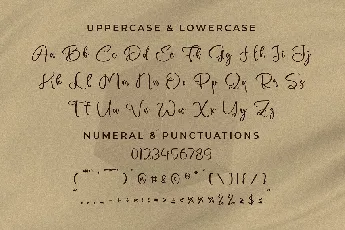 UPPERCASE & LOWERCASE
Aa Bb Cc Dd Ee Ff Gg Hh Ii Jj
Kk Ll Mm Nn Oo Pp Qq Rr Ss
Tt Uu Vv Ww Xx Yy Zz
NUMERAL & PUNCTUATIONS
0123456789
@ # & © ® { \ } | [ / ]